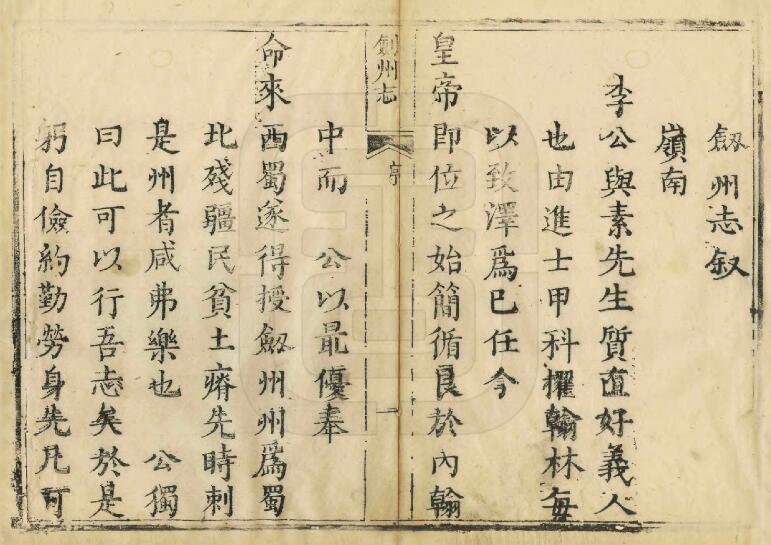 劔州志叙
嶺南
李公與素先生質直好義人
也由進士甲科擢翰林每
以致澤爲己任今
皇帝即位之始簡循良於內翰
劍州志
序
一
中而 公以最優奉
命來西蜀遂得授劔州州爲蜀
北殘疆民貧土瘠先時刺
是州者咸弗樂也 公獨
曰此可以行吾志矣於是
躬自儉約勤勞身先凡可